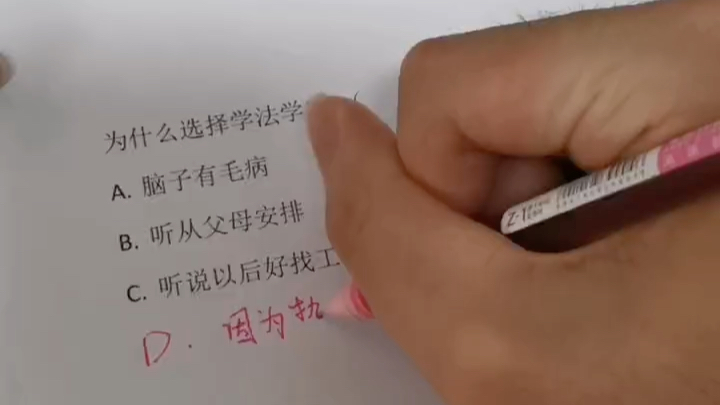 为什么选择学法学 (
A. 脑子有毛病
B. 听从父母安排
C. 听说以后好找工
D. 因为
Z-1